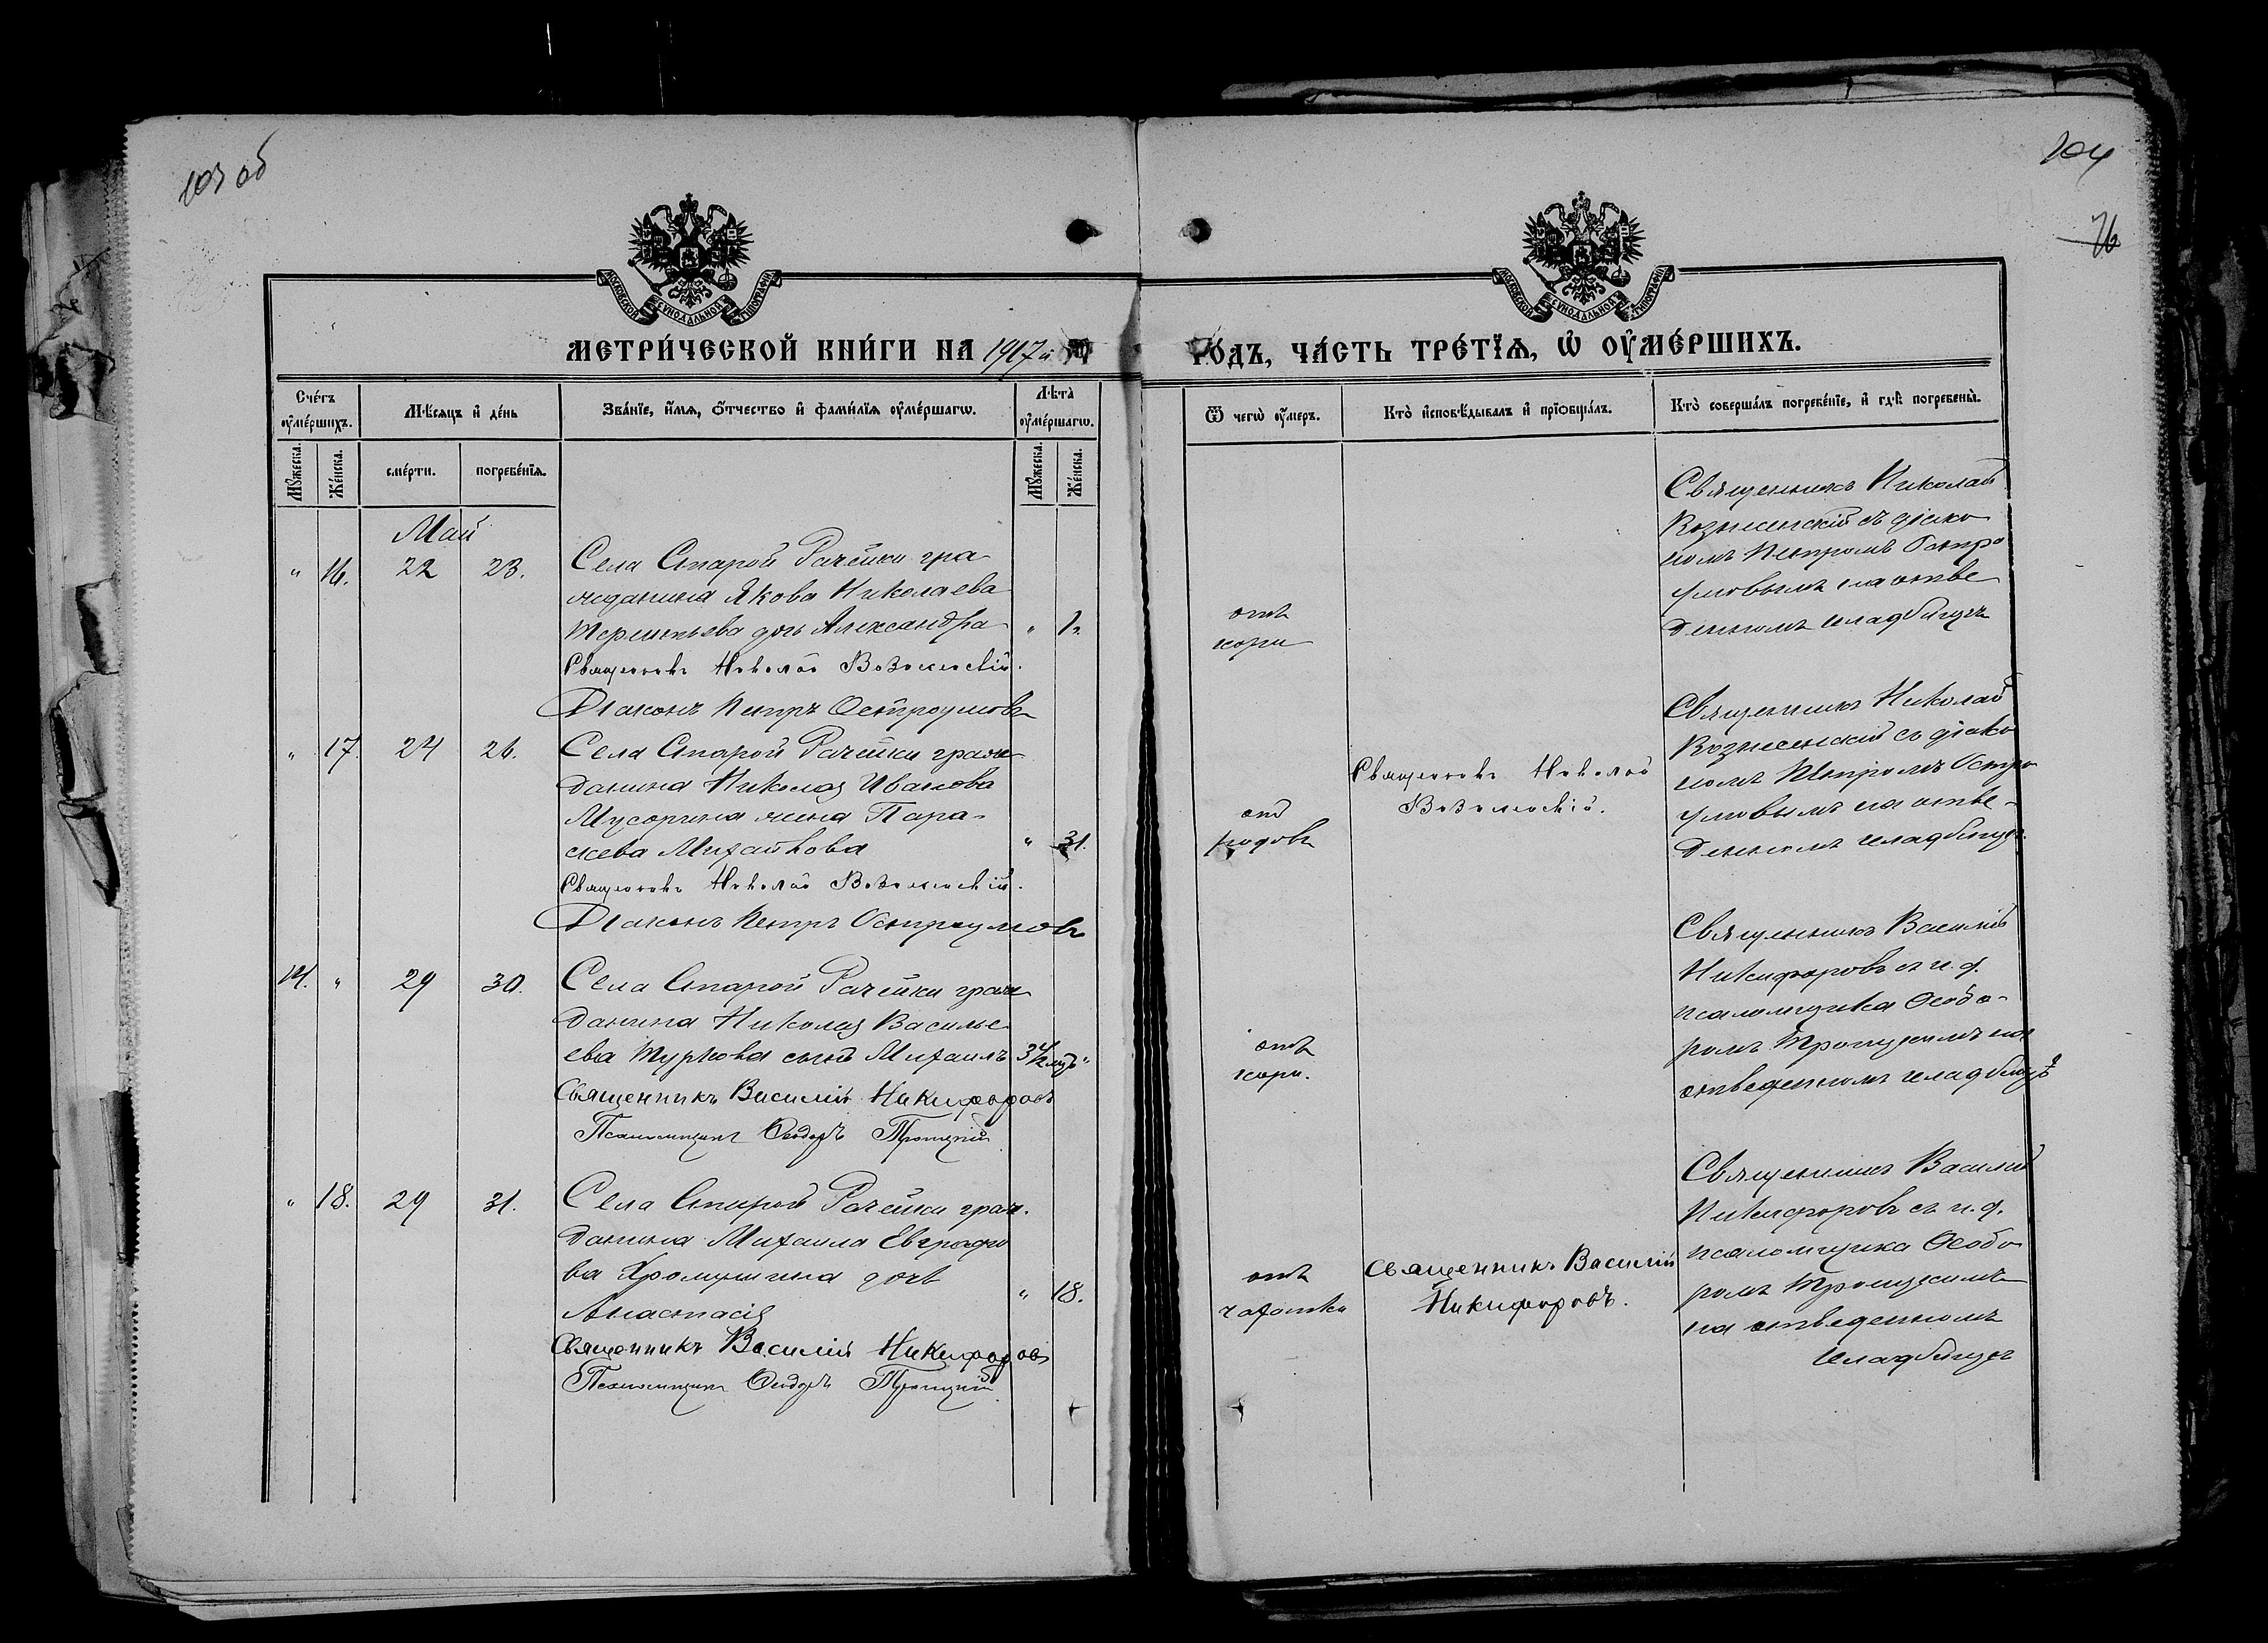 103 об
104
76
МОСКОВСКОЙ СѴНОДАЛЬНОЙ ТИПОГРАФІИ
МОСКОВСКОЙ СѴНОДАЛЬНОЙ ТИПОГРАФІИ
МЕТРИ́ЧЕСКОЙ КНИ́ГИ НА 1917й
ГО́ДЪ, ЧА́СТЬ ТРЕ́ТЇѦ, Ѡ҆ ОУ҆МЕ́РШИХЪ.
Сче́тъ оу҆ме́ршихъ.
Мѣ́сяцъ и҆ де́нь
Зва́нїе, и҆́мя, ѻ҆́тчество и҆ фамн́лїя оу҆ме́ршагѡ.
Лѣ́та оу҆ме́ршагѡ.
Мꙋ́жеска.
Же́нска.
сме́рти.
погребе́нїя.
Мꙋ́жеска.
Же́нска.
Ѿ чегѡ̀ оу҆́меръ.
Кто̀ и҆сповѣ́дывалъ и҆ прїѡбща́лъ.
Кто̀ соверша́лъ погребе́нїе, и҆ гдѣ̀ погребены̀.
Май
" 16. 22 23. Села Старой Рачейки гра-
жданина Якова Николаева
Терентьева дочь Александра " 1г.
Священникъ Николай Вознесенскій.
Діаконъ Петръ Остроумовъ
отъ
кори
Священникъ Николай
Вознесенскій съ діако
номъ Петромъ Остро
умовымъ на отве
денномъ кладбищѣ
" 17. 24 26. Села Старой Рачейки граж-
данина Николая Иванова
Мусорина жена Пара-
скева Михайлова " 31.
Священникъ Николай Вознесенскій.
Діаконъ Петръ Остроумовъ
отъ
родовъ
Священникъ Николай
Вознесенскій.
Священникъ Николай
Вознесенскій съ діако
номъ Петромъ Остро
умовымъ на отве-
денномъ кладбищѣ.
14. " 29 30. Села Старой Рачейки граж
данина Николая Василье
ева Туркова сынъ Михаилъ "
Священникъ Василій Никифоровъ
Псаломщикъ Ѳеодоръ Троицкій
отъ
кори.
Священникъ Василій
Никифоровъ съ и. д.
псаломщика Ѳеодо-
ромъ Троицкимъ на
отведенномъ кладбищѣ
" 18. 29 31. Села Старой Рачейки граж.
данина Михаила Евграфо
ва Хромушина дочь
Анастасія " 18.
Священникъ Василій Никифоровъ
Псаломщикъ Ѳеодоръ Троицкій.
отъ
чахотки
Священникъ Василій
Никифоровъ.
Священникъ Василій
Никифоровъ съ и. д.
псаломщика Ѳеодо
ромъ Троицкимъ
на отведенномъ
кладбищѣ